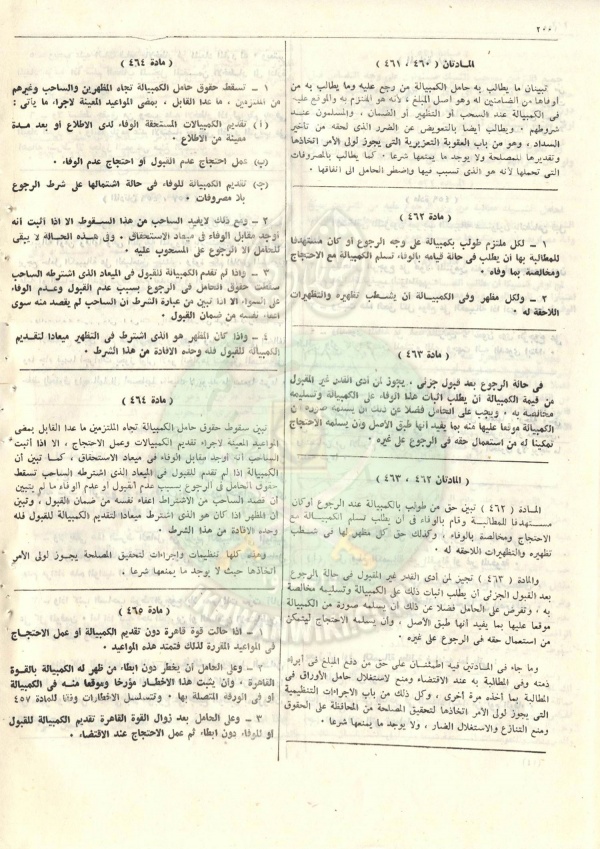 ٢٠٠
المادتان ( ٤٦٠ ، ٤٦١ )
تبينان ما يطالب به حامل الكمبيالة من رجع عليه وما يطالب به من
أوفاها من الضامنين له وهو أصل المبلغ ، لأنه هو الملتزم به والموقع عليه
فى الكمبيالة عند السحب أو التظهير أو الضمان ، والمسلمون عند
شروطهم . ويطالب أيضا بالتعويض عن الضرر الذى لحقه من تأخير
السداد ، وهو من باب العقوبة التعزيرية التى يجوز لولى الأمر اتخاذها
وتقديرها للمصلحة ولا يوجد ما يمنعها شرعا . كما يطالب بالمصروفات
التى تحملها لأنه هو الذى تسبب فيها واضطر الحامل الى انفاقها .
مادة ( ٤٦٢ )
١ – لكل ملتزم طولب بكمبيالة على وجه الرجوع أو كان مستهدفا
للمطالبة بها أن يطلب فى حالة قيامه بالوفاء تسلم الكمبيالة مع الاحتجاج
ومخالصة بما وفاه .
٢ – ولكل مظهر وفى الكمبيالة أن يشطب تظهيره والتظهيرات
اللاحقة له .
مادة ( ٤٦٣ )
فى حالة الرجوع بعد قبول جزئى . يجوز لمن أدى القدر غير المقبول
من قيمة الكمبيالة أن يطلب اثبات هذا الوفاء على الكمبيالة وتسليمه
مخالصة به . ويجب على الحامل فضلا عن ذلك أن يسلمه صورة من
الكمبيالة موقعا عليها منه بما يفيد أنها طبق الأصل وأن يسلمه الاحتجاج
تمكينا له من استعمال حقه فى الرجوع على غيره .
المادتان ( ٤٦٢ ، ٤٦٣ )
المادة ( ٤٦٢ ) تبين حق من طولب بالكمبيالة عند الرجوع أو كان
مستهدفا للمطالبة وقام بالوفاء فى أن يطلب تسلم الكمبيالة مع
الاحتجاج ومخالصة بالوفاء ، وكذلك حق كل مظهر لها فى شطب
تظهيره والتظهيرات اللاحقة له .
والمادة ( ٤٦٣ ) تجيز لمن أدى القدر غير المقبول فى حالة الرجوع
بعد القبول الجزئى أن يطلب اثبات ذلك على الكمبيالة وتسليمه مخالصة
به ، وتفرض على الحامل فضلا عن ذلك أن يسلمه صورة من الكمبيالة
موقعا عليها بما يفيد أنها طبق الأصل ، وأن يسلمه الاحتجاج ليتمكن
من استعمال حقه فى الرجوع على غيره .
وما جاء فى المادتين فيه اطمئنان على حق من دفع المبلغ فى ابراء
ذمته وفى المطالبة به عند الاقتضاء ومنع لاستغلال حامل الأوراق فى
المطالبة بما أخذه مرة أخرى ، وكل ذلك من باب الاجراءات التنظيمية
التى يجوز لولى الأمر اتخاذها لتحقيق المصلحة من المحافظة على الحقوق
ومنع التنازع والاستغلال الضار ، ولا يوجد ما يمنعها شرعا .
مادة ( ٤٦٤ )
١ – تسقط حقوق حامل الكمبيالة تجاه المظهرين والساحب وغيرهم
من الملتزمين ، ما عدا القابل ، بمضى المواعيد المعينة لاجراء ما يأتى :
( أ ) تقديم الكمبيالات المستحقة الوفاء لدى الاطلاع أو بعد مدة
معينة من الاطلاع .
(ب) عمل احتجاج عدم القبول أو احتجاج عدم الوفاء .
(ج) تقديم الكمبيالة للوفاء فى حالة اشتمالها على شرط الرجوع
بلا مصروفات .
٢ – ومع ذلك لا يفيد الساحب من هذا السقوط الا اذا أثبت أنه
أوجد مقابل الوفاء فى ميعاد الاستحقاق . وفى هذه الحالة لا يبقى
للحامل الا الرجوع على المسحوب عليه .
٣ – واذا لم تقدم الكمبيالة للقبول فى الميعاد الذى اشترطه الساحب
سقطت حقوق الحامل فى الرجوع بسبب عدم القبول وعدم الوفاء
على السواء الا اذا تبين من عبارة الشرط أن الساحب لم يقصد منه سوى
اعفاء نفسه من ضمان القبول .
٤ – واذا كان المظهر هو الذى اشترط فى التظهير ميعادا لتقديم
الكمبيالة للقبول فله وحده الافادة من هذا الشرط .
مادة ( ٤٦٤ )
تبين سقوط حقوق حامل الكمبيالة تجاه الملتزمين ما عدا القابل بمضى
المواعيد المعينة لاجراء تقديم الكمبيالات وعمل الاحتجاج ، الا اذا أثبت
الساحب أنه أوجد مقابل الوفاء فى ميعاد الاستحقاق ، كما تبين أن
الكمبيالة اذا لم تقدم للقبول فى الميعاد الذى اشترطه الساحب تسقط
حقوق الحامل فى الرجوع بسبب عدم القبول أو عدم الوفاء ما لم يتبين
أن قصد الساحب من الاشتراط اعفاء نفسه من ضمان القبول ، وتبين
أن المظهر اذا كان هو الذى اشترط ميعادا لتقديم الكمبيالة للقبول فله
وحده الافادة من هذا الشرط .
وهذه كلها تنظيمات واجراءات لتحقيق المصلحة يجوز لولى الأمر
اتخاذها حيث لا يوجد ما يمنعها شرعا .
مادة ( ٤٦٥ )
١ – اذا حالت قوة قاهرة دون تقديم الكمبيالة أو عمل الاحتجاج
فى المواعيد المقررة لذلك فتمتد هذه المواعيد .
٢ – وعلى الحامل أن يخطر دون ابطاء من ظهر له الكمبيالة بالقوة
القاهرة ، وأن يثبت هذا الاخطار مؤرخا وموقعا منه فى الكمبيالة
أو فى الورقة المتصلة بها . وتتسلسل الاخطارات وفقا للمادة ٤٥٧
٣ – وعلى الحامل بعد زوال القوة القاهرة تقديم الكمبيالة للقبول
أو للوفاء دون ابطاء ثم عمل الاحتجاج عند الاقتضاء .